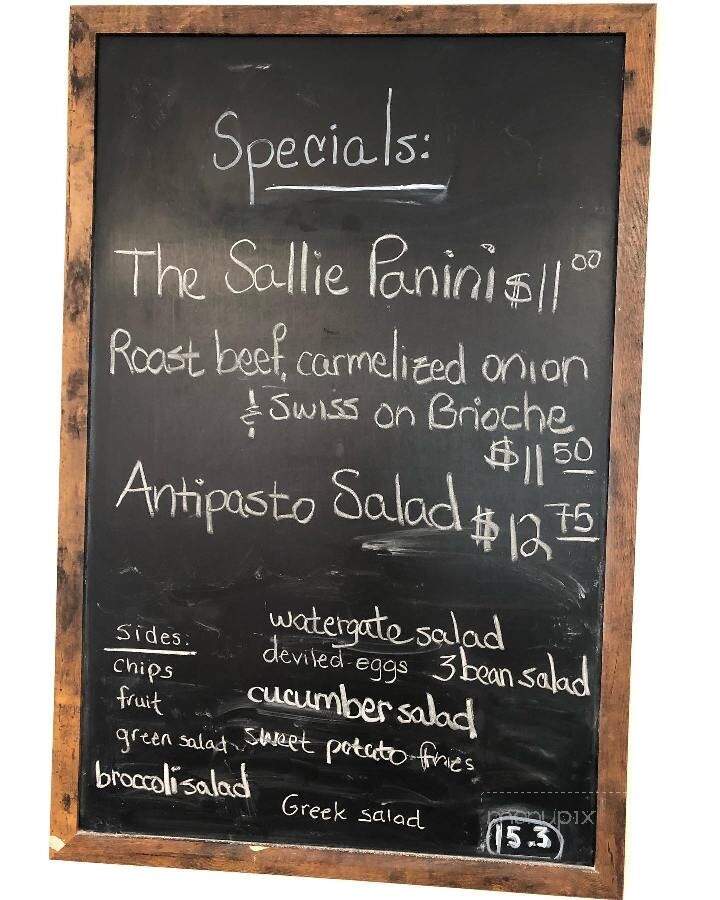 Specials:
The Sallie Panini $11 00
Roast beef, carmelized onion
& Swiss on Brioche
$11 50
Antipasto Salad $12 75
sides:
chips
fruit
green salad
broccoli salad
watergate salad
deviled eggs 3 bean salad
cucumber salad
sweet potato fries
Greek salad
menupix
15.3